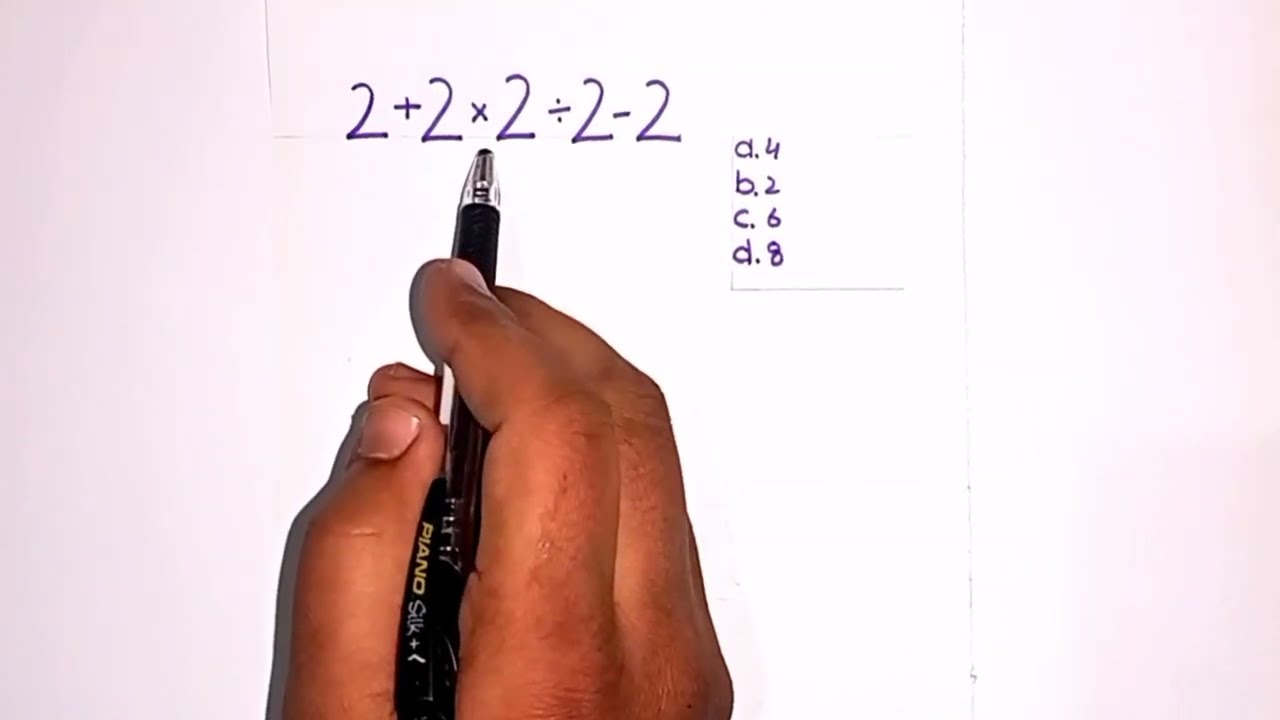 2+2×2÷2-2
a. 4
b. 2
c. 6
d. 8
PIANO Silk+